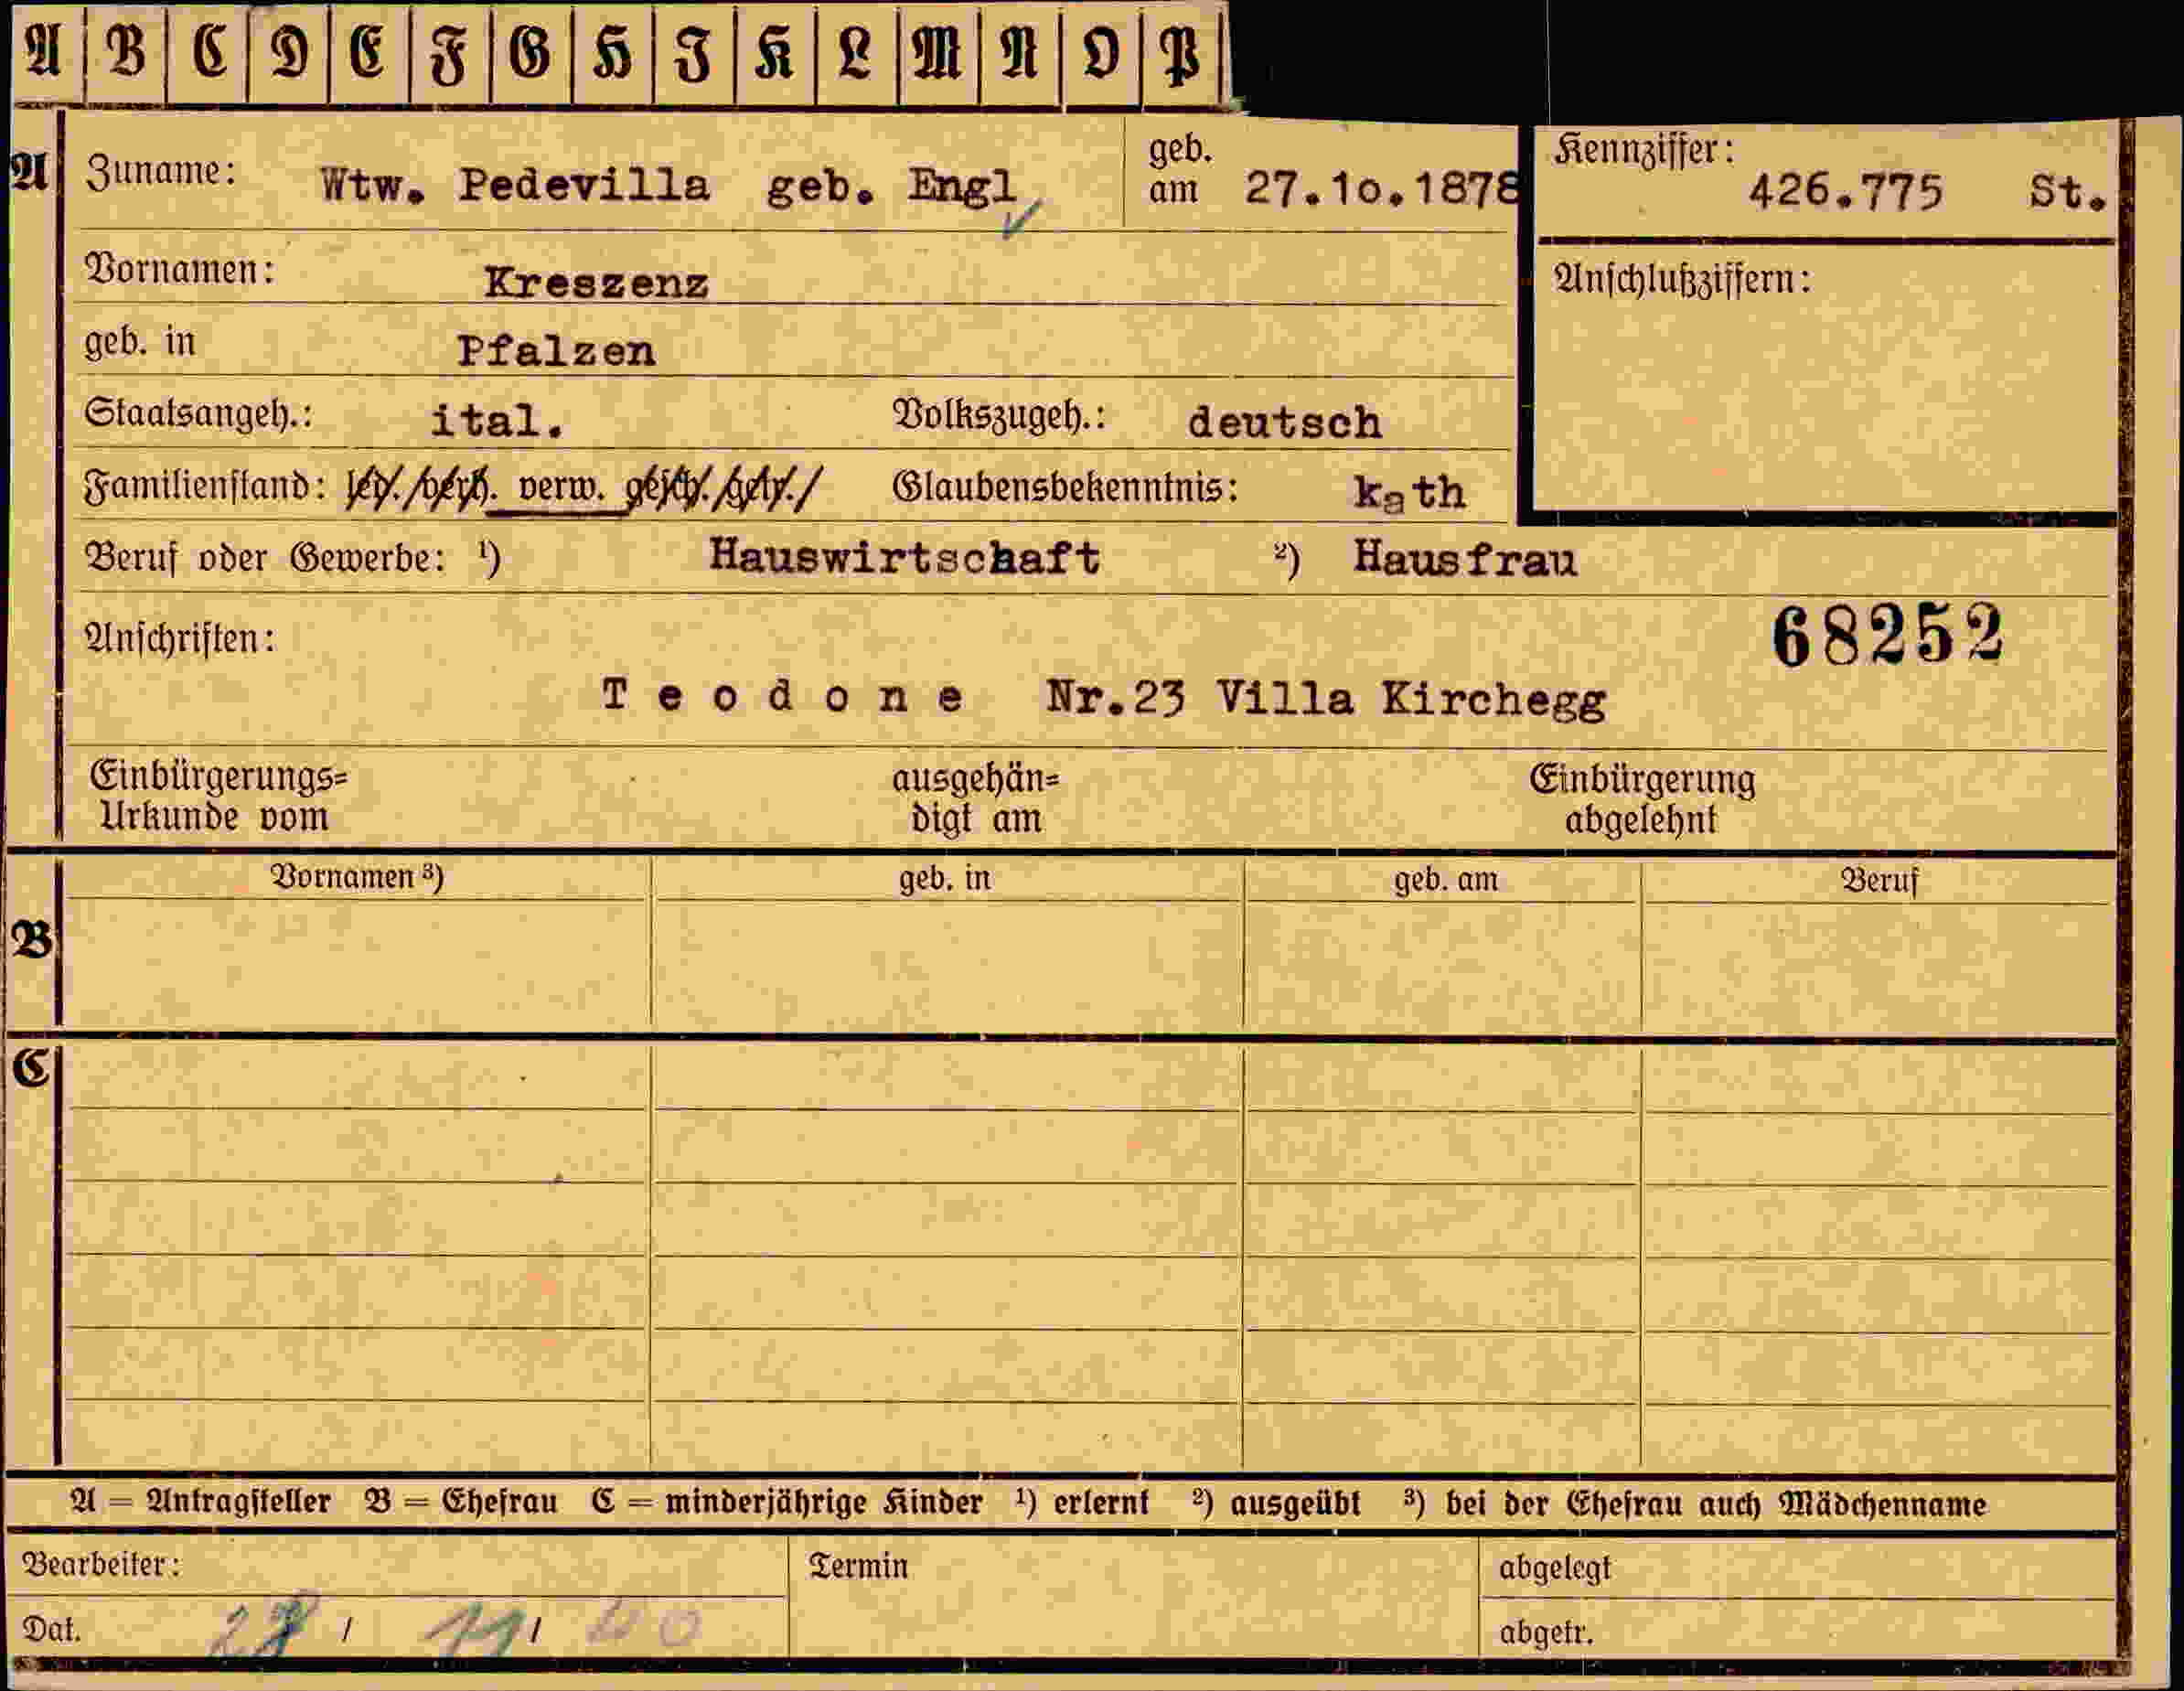 A B C D E F G H I K L M N O P
A Zuname: Wtw. Pedevilla geb. Engl geb. am 27.10.1878 Kennziffer: 426.775 St.
Vornamen: Kreszenz Anschlußziffern:
geb. in Pfalzen
Staatsangeh.: ital. Volkszugeh.: deutsch
Familienstand: led./verh. verw. gesch./getr./ Glaubensbekenntnis: kath
Beruf oder Gewerbe: ¹) Hauswirtschaft ²) Hausfrau
Anschriften: 68252
Teodone Nr.23 Villa Kirchegg
Einbürgerungs= ausgehän= Einbürgerung
Urkunde vom digt am abgelehnt
Vornamen ³) geb. in geb. am Beruf
B
C
A = Antragsteller B = Ehefrau C = minderjährige Kinder ¹) erlernt ²) ausgeübt ³) bei der Ehefrau auch Mädchenname
Bearbeiter: Termin abgelegt
Dat. / 11/ 40 abgetr.